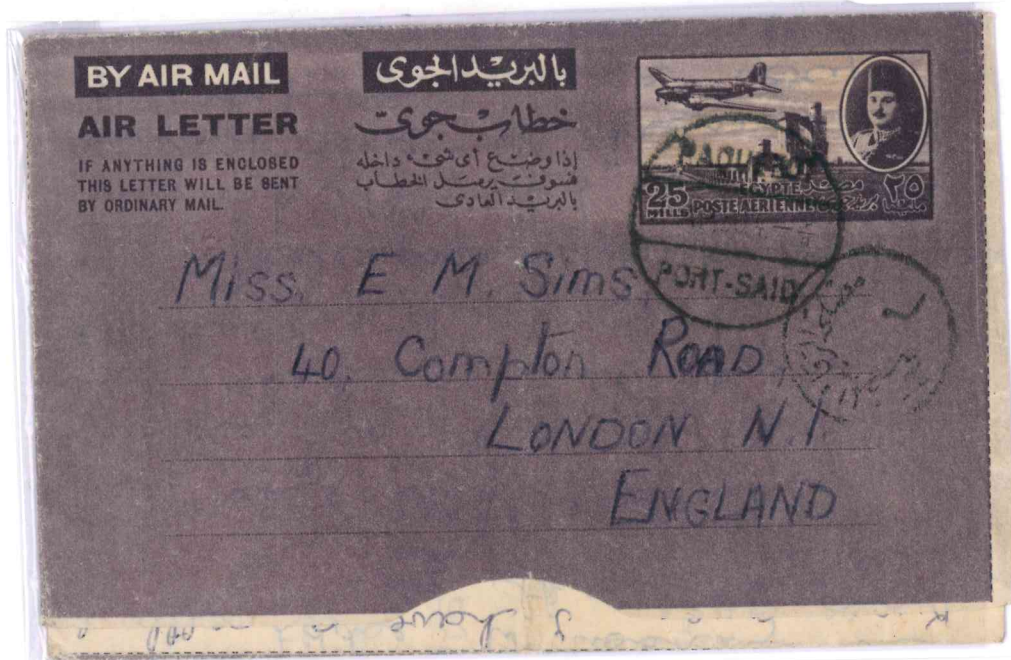 BY AIR MAIL
AIR LETTER
IF ANYTHING IS ENCLOSED
THIS LETTER WILL BE SENT
BY ORDINARY MAIL.
بالبريد الجوى
خطاب جوى
إذا وضع أى شىء داخله
فسوف يرسل الخطاب
بالبريد العادى
25
MILLS
EGYPTE
مصر
POSTE AERIENNE
٢٥
PAQUEBOT
PORT-SAID
Miss. E M. Sims,
40, Compton ROAD,
LONDON N.1
ENGLAND
I have